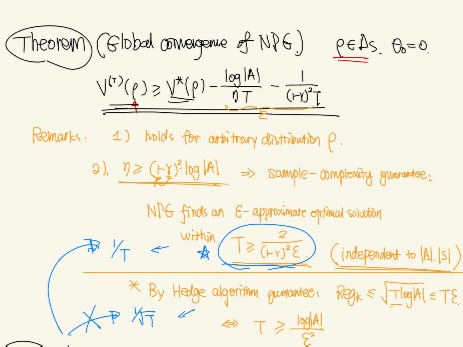 Theorem (Global convergence of NPG.) ρ∈Δs. θ₀=0.
V^(T)(ρ) ≥ V*(ρ) - log|A| / ηT - 1 / (1-γ)²T
ε
Remarks: 1) holds for arbitrary distribution ρ.
2). η ≥ (1-γ)² log|A| ⇒ sample-complexity guarantee:
NPG finds an ε-approximate optimal solution
within T ≥ 2 / (1-γ)²ε (independent to |A|.|S|)
1/T ←
* By Hedge algorithm guarantee: Reg_k ≤ √T log|A| ≤ Tε
1/√T ← ⇔ T ≥ log|A| / ε²